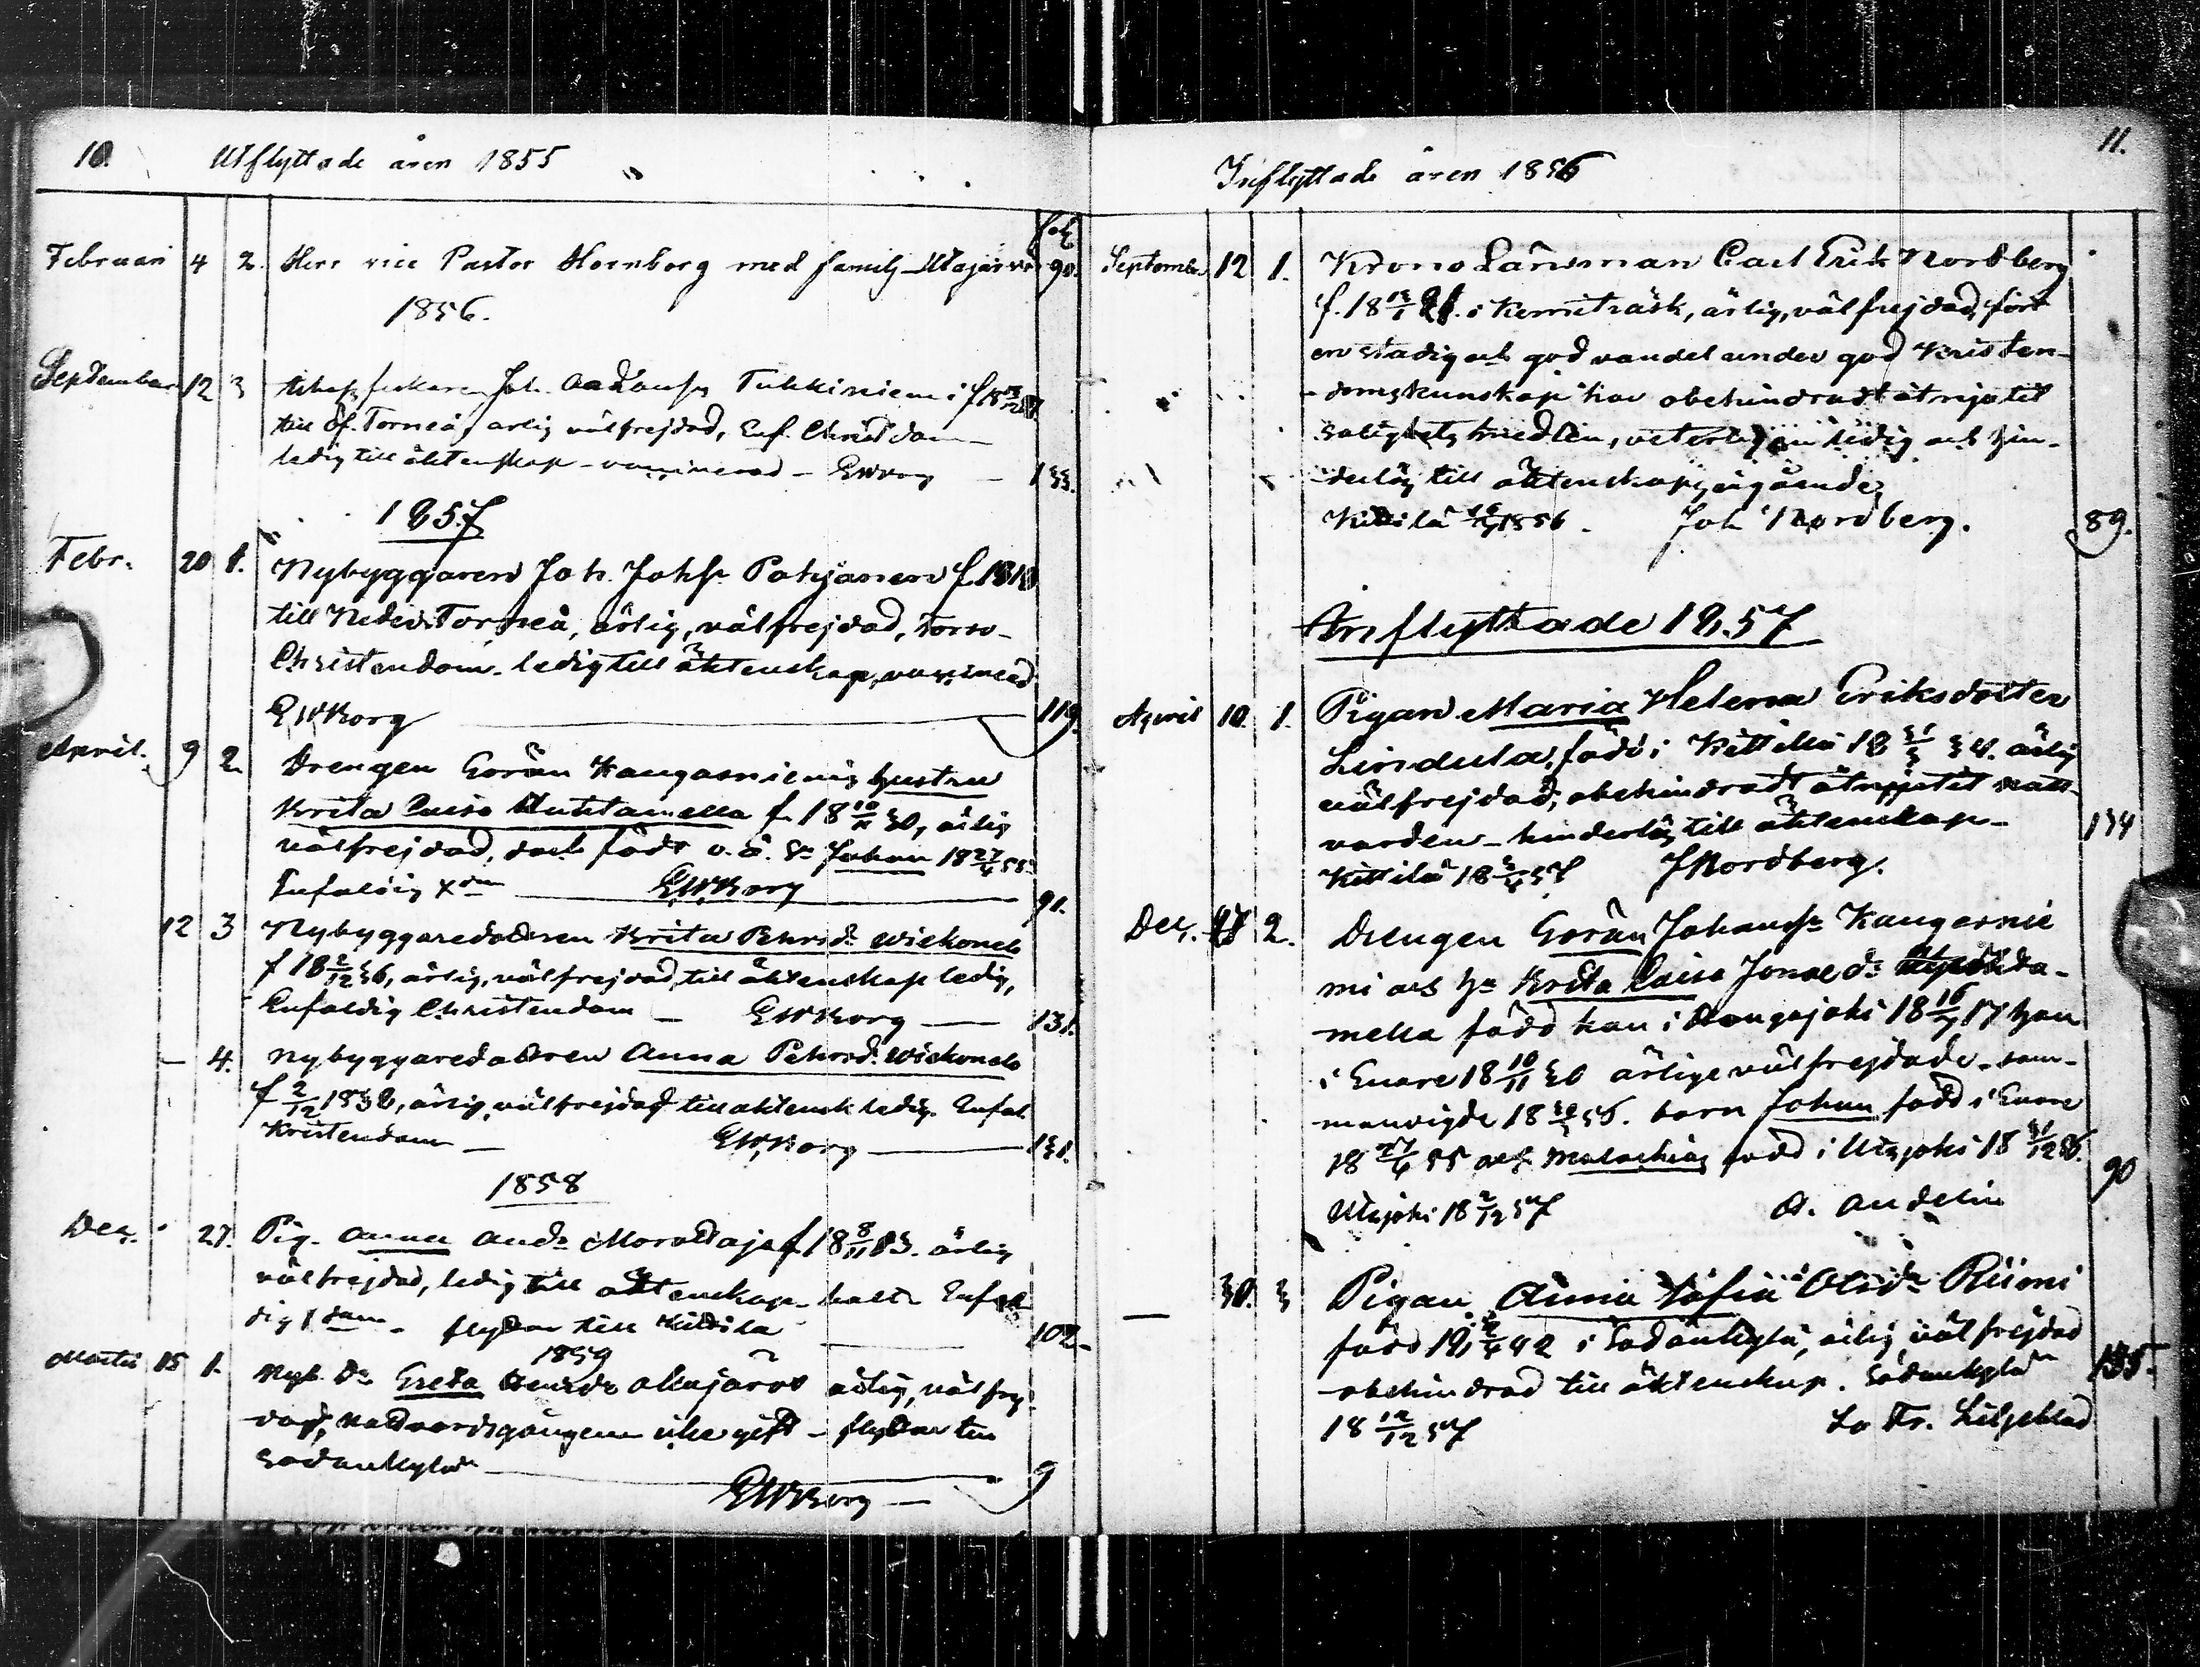 10. Utflyttade åren 1855
fol.
Februari 4 2. Herr vice Pastor Hornborg med familj Utajärvi 90.
1856.
September 12 3 Joh. Tuhkiniemi f
till Öf. Torneå, ärlig välfrejdad, Enf. Christdom
ledig till äktenskap - vaccinerad - EWBorg — 133.
1857
Febr. 20 1. Nybyggaren Joh. Johss Pohjanen f. 1818
till Neder Torneå, ärlig, välfrejdad,
Christendom. ledig till äktenskap, vaccinerad
EWBorg — 119.
April. 9 2 Drengen Göran Kangasniemis hustru
Krita Caisa f. 18 10/11 30, ärlig
välfrejdad, födt o. ä. Sn Johan 18 27/4 55.
Enfaldig Xdm — EWBorg — 91.
12 3 Nybyggaredottren Krita Pehrsd:
f 18 2/12 36, ärlig, välfrejdad, till äktenskap ledig,
Enfaldig Christendom — EWBorg — 131.
— 4. Nybyggaredottren Anna Pehrsd.
f 2/12 1838, ärlig, välfrejdad till äktensk ledig. Enfal
Kristendom — EWBorg — 131.
1858
Dec. 27. Pig. Anna Andn Morottaja f 18 8/11 ärlig
välfrejdad, ledig till äktenskap - Enfal
dig Xdom - flyttar till Kittilä — 102.
1859
Martii 15 1. Nyb. Dr Greta Akujärvi ärlig, välfrej
dad, Nattvardsgången icke gift - flyttar till
Sodankylä — 9
EWBorg —
11.
Inflyttade åren 1856
September 12 1. Krono Länsman Carl Erik Nordberg
f. 18 i Kemiträsk, ärlig, välfrejdad, fört
en stadig och god vandel under god Kristen-
domskunskap har obehindradt åtnjutit
salighetsmedlen, veterligen ledig och hin-
derlös till äktenskaps ingående,
Kittilä 1856. Joh Nordberg. 89.
Inflyttade 1857
April 10 1. Pigan Maria Helena Eriksdotter
Lindula, född i Kittilä 18 34. ärlig
välfrejdad, obehindradt åtnjutit natt-
varden - hinderlös till äktenskap - 134
Kittilä 18 57 JNordberg.
Dec. 2. Drengen Göran Johanss Kangasnie
mi och h: Krita Caisa Jonaed:
mella född han i 18 16 17 hon
i Enare 18 10/11 30 ärlige välfrejdade - sam-
manvigde 18 56. barn Johan född i Enare
18 27/4 55 och född i Utsjoki 18 31/12 56. 90
Utsjoki 18 2/12 57 A. Andelin
— 30. 3 Pigan Anna Sofia Olsdr Riimi
född 42 i Sodankylä, ärlig, välfrejdad
obehindrad till äktenskap. Sodankylä 135.
18 12/12 57 Fr. Liljeblad